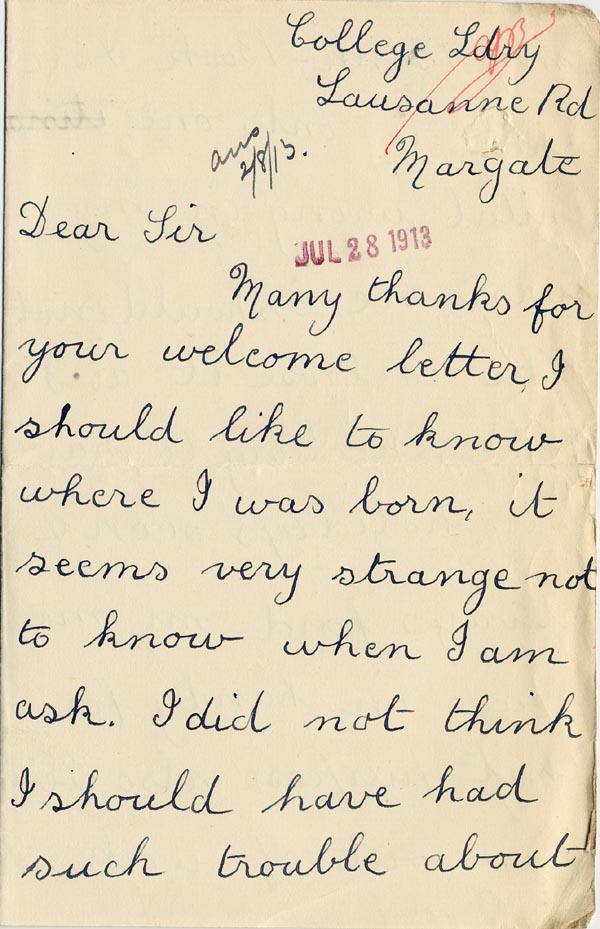 College Ldry
Lausanne Rd
Margate
ans
2/8/13.
Dear Sir
JUL 28 1913
Many thanks for
your welcome letter, I
should like to know
where I was born, it
seems very strange not
to know when I am
ask. I did not think
I should have had
such trouble about